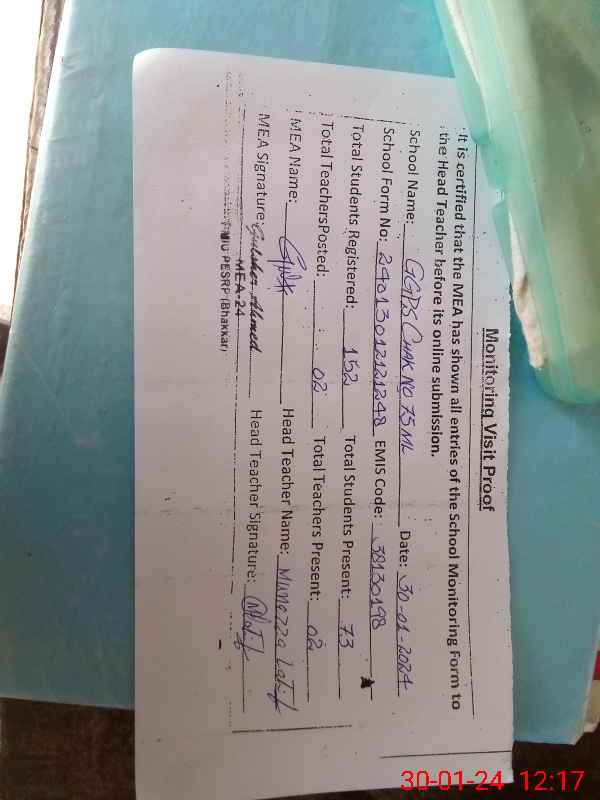 Monitoring Visit Proof
It is certified that the MEA has shown all entries of the School Monitoring Form to
the Head Teacher before its online submission.
School Name: GGPS CHAK NO 75 ML Date: 30-01-2024
School Form No: 24013012121248 EMIS Code: 38130198
Total Students Registered: 152 Total Students Present: 73
Total TeachersPosted: 02 Total Teachers Present: 02
MEA Name: Head Teacher Name: Munezza Latif
MEA Signature: Ahmed Head Teacher Signature: MLatif
MEA-24
PESRP (Bhakkar)
30-01-24 12:17